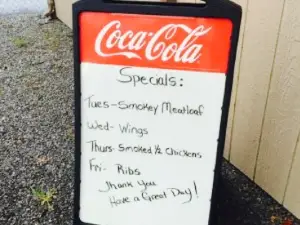 Coca-Cola
Specials:
Tues-Smokey Meatloaf
Wed- Wings
Thurs-Smoked 1/2 Chickens
Fri- Ribs
Thank You
Have a Great Day!